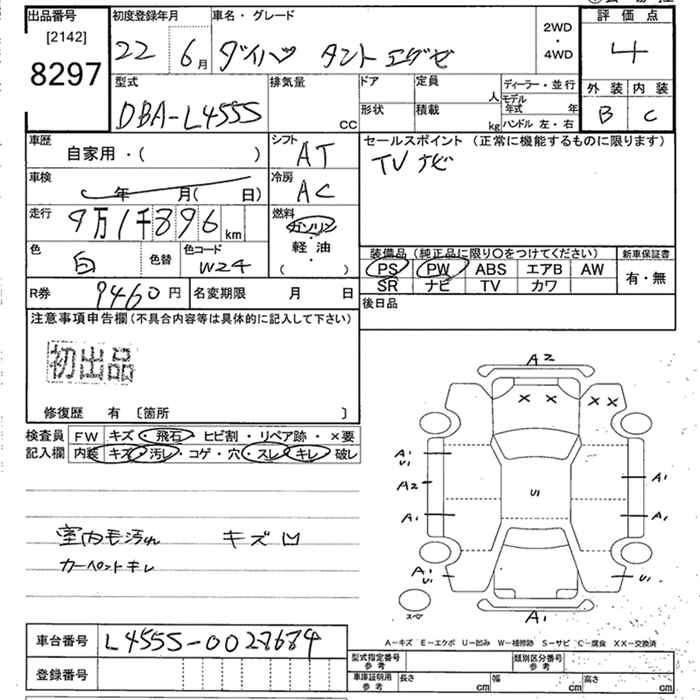 出品番号
[2142]
8297
初度登録年月
22 6月
車名・グレード
ダイハツ タントエグゼ
2WD
・
4WD
評価点
4
外装 内装
B C
型式
DBA-L455S
排気量
CC
ドア
形状
定員
人
積載
kg
ディーラー・並行
モデル年式 年
ハンドル 左・右
車歴
自家用・( )
シフト
AT
セールスポイント (正常に機能するものに限ります)
TV ナビ
車検
年 月( 日)
冷房
AC
走行
9万1千896km
燃料
ガソリン
軽・油
( )
色
白
色替
色コード
W24
装備品 (純正品に限り〇をつけてください)
PS PW ABS エアB AW
SR ナビ TV カワ
新車保証書
有・無
R券
9460円
名変期限 月 日
後日品
注意事項申告欄(不具合内容等は具体的に記入して下さい)
初出品
修復歴 有 〔箇所 〕
検査員
記入欄
FW キズ・飛石・ヒビ割・リペア跡・×要
内装 キズ・汚レ・コゲ・穴・スレ・キレ・破レ
室内毛汚れ キズ凹
カーペットキレ
A2
× × × ×
A1
U1
A2
A1
U1
A1
A1
A1
U1
U1
スペア
A1
A-キズ E-エクボ U-凹み W-補修跡 S-サビ C-腐食 XX-交換済
車台番号
L455S-0027684
登録番号
型式指定番号
参考
類別区分番号
参考
車庫証明用
参考
長さ cm
幅 cm
高さ cm